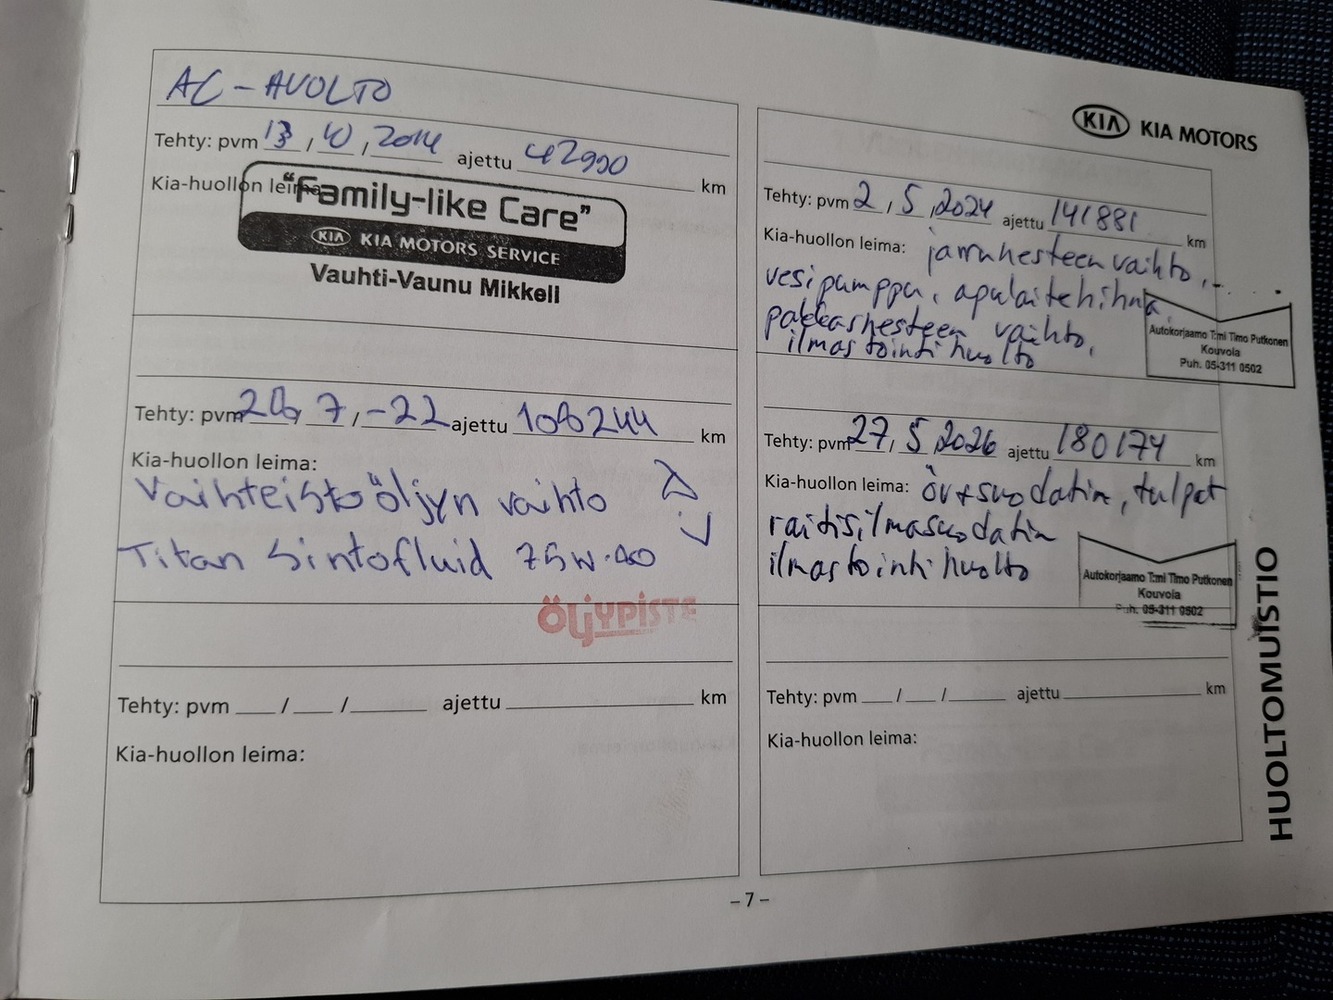 AC-HUOLTO
Tehty: pvm 13 / 10 / 2014 ajettu 42990 km
Kia-huollon leima:
"Family-like Care"
KIA KIA MOTORS SERVICE
Vauhti-Vaunu Mikkeli
Tehty: pvm 20, 7 / -22 ajettu 108244 km
Kia-huollon leima:
Vaihteistoöljyn vaihto
Titan Sintofluid 75W-80
ÖLJYPISTE
Tehty: pvm / / ajettu km
Kia-huollon leima:
KIA KIA MOTORS
Tehty: pvm 2 / 5 / 2024 ajettu 141881 km
Kia-huollon leima: jarrunesteen vaihto,
vesipumppu, apulaitehihna,
pakkasnesteen vaihto,
ilmastointihuolto
Autokorjaamo T:mi Timo Putkonen
Kouvola
Puh. 05-311 0502
Tehty: pvm 27 / 5 2026 ajettu 180174 km
Kia-huollon leima: öv+suodatin, tulpat
raitisilmasuodatin
ilmastointihuolto
Autokorjaamo T:mi Timo Putkonen
Kouvola
Puh. 05-311 0502
Tehty: pvm / / ajettu km
Kia-huollon leima:
HUOLTOMUISTIO
– 7 –